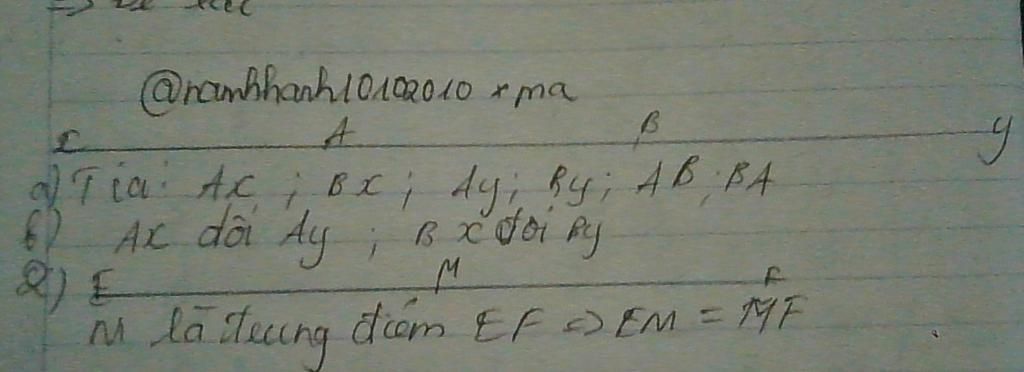 @namhhanh10102010 x ma
x A B y
a) Tia: Ax; Bx; Ay; By; AB; BA
b) Ax đối Ay; Bx đối By
2) E M F
M là trung điểm EF => EM = MF